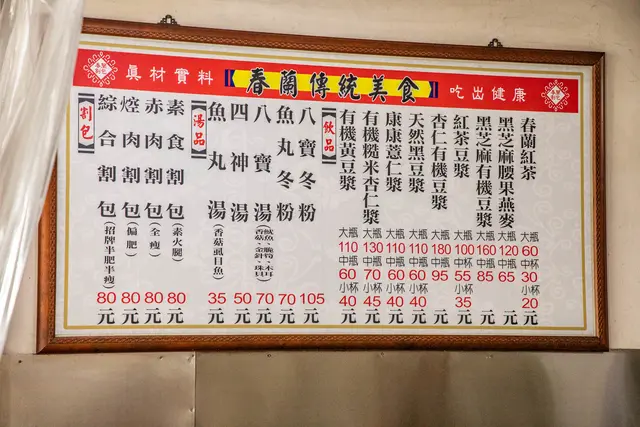 眞材實料
春蘭傳統美食
吃出健康
割包
綜合割包(招牌半肥半瘦)80元
焢肉割包(偏肥)80元
赤肉割包(全瘦)80元
素食割包(素火腿)80元
湯品
魚丸湯(香菇虱目魚)35元
四神湯50元
八寶湯(魷魚、脆筍、木耳香菇、金針、珠貝)70元
魚丸冬粉70元
八寶冬粉105元
飲品
有機黃豆漿大瓶110中瓶60小杯40元
有機糙米杏仁漿大瓶130中瓶70小杯45元
康康薏仁漿大瓶110中瓶60小杯40元
天然黑豆漿大瓶110中瓶60小杯40元
杏仁有機豆漿大瓶180中瓶95元
紅茶豆漿大瓶100中杯55小杯35元
黑芝麻有機豆漿大瓶160中瓶85元
黑芝麻腰果燕麥大瓶120中瓶65元
春蘭紅茶大瓶60中杯30小杯20元